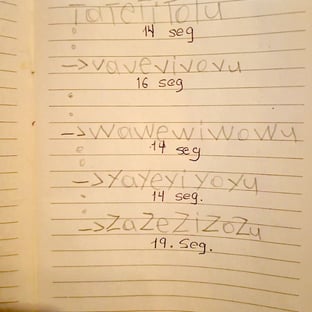 TaTeTiTolu
14 seg
->vavevivovu
16 seg
->wawewiwowu
14 seg
->yayeyiyoyu
14 seg.
->ZaZeZiZoZu
19. seg.